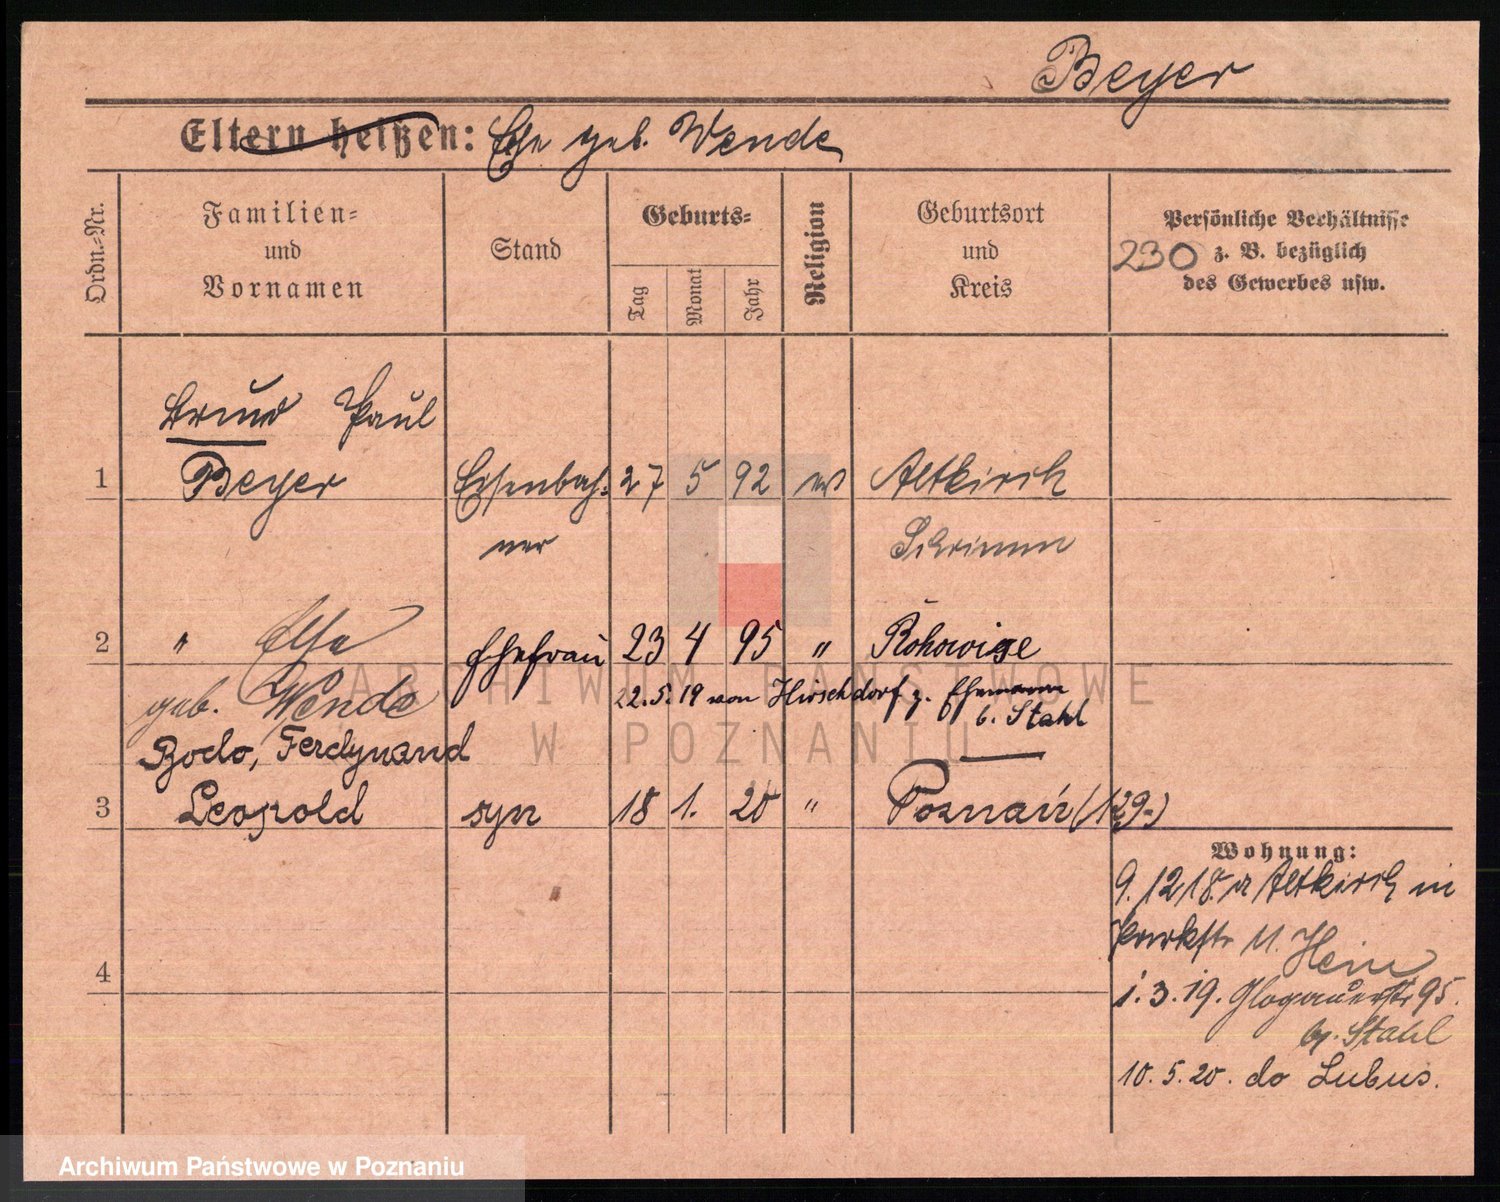 Beyer
Eltern heißen: Ehe geb. Wende
Ordn.-Nr.
Familien=
und
Vornamen
Stand
Geburts=
Tag
Monat
Jahr
Religion
Geburtsort
und
Kreis
Persönliche Verhältnisse
230 z. B. bezüglich
des Gewerbes usw.
Paul
1 Beyer Eisenbah= 27 5 92 ev Altkirch
ner Schrimm
2 " Else Ehefrau 23 4 95 " Rohowige
geb. Wende 22.5.19 von Hirschdorf z. Ehemann
b. Stahl
Bodo, Ferdynand
3 Leopold syn 18 1. 20 " Poznań (129-)
Wohnung:
9.12 18. a Altkirch in
Parkstr 11. Hein
1.3.19. Glogauerstr 95.
bg. Stahl
10.5.20. do Lubus.
4
ARCHIWUM PAŃSTWOWE
W POZNANIU
Archiwum Państwowe w Poznaniu